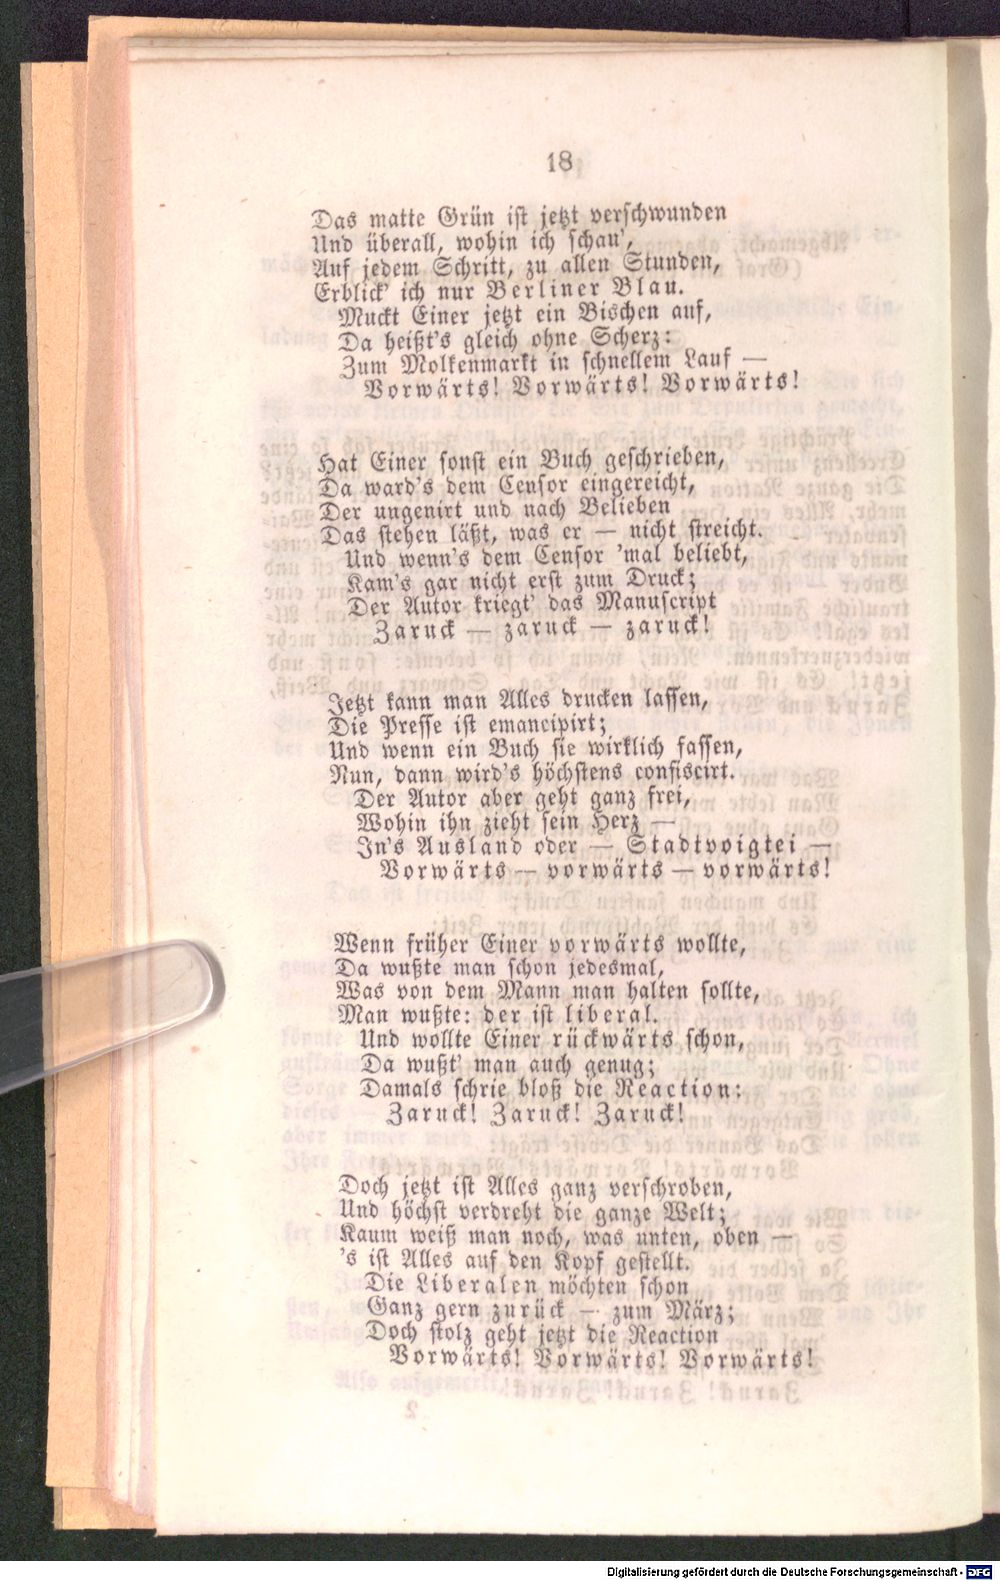 18
Das matte Grün ist jetzt verschwunden
Und überall, wohin ich schau',
Auf jedem Schritt, zu allen Stunden,
Erblick' ich nur Berliner Blau.
Muckt Einer jetzt ein Bischen auf,
Da heißt's gleich ohne Scherz:
Zum Molkenmarkt in schnellem Lauf —
Vorwärts! Vorwärts! Vorwärts!
Hat Einer sonst ein Buch geschrieben,
Da ward's dem Censor eingereicht,
Der ungenirt und nach Belieben
Das stehen läßt, was er — nicht streicht.
Und wenn's dem Censor 'mal beliebt,
Kam's gar nicht erst zum Druck;
Der Autor kriegt' das Manuscript
Zaruck — zaruck — zaruck!
Jetzt kann man Alles drucken lassen,
Die Presse ist emancipirt;
Und wenn ein Buch sie wirklich fassen,
Nun, dann wird's höchstens confiscirt.
Der Autor aber geht ganz frei,
Wohin ihn zieht sein Herz —
In's Ausland oder — Stadtvoigtei —
Vorwärts — vorwärts — vorwärts!
Wenn früher Einer vorwärts wollte,
Da wußte man schon jedesmal,
Was von dem Mann man halten sollte,
Man wußte: der ist liberal.
Und wollte Einer rückwärts schon,
Da wußt' man auch genug;
Damals schrie bloß die Reaction:
Zaruck! Zaruck! Zaruck!
Doch jetzt ist Alles ganz verschroben,
Und höchst verdreht die ganze Welt;
Kaum weiß man noch, was unten, oben —
's ist Alles auf den Kopf gestellt.
Die Liberalen möchten schon
Ganz gern zurück — zum März;
Doch stolz geht jetzt die Reaction
Vorwärts! Vorwärts! Vorwärts!
Digitalisierung gefördert durch die Deutsche Forschungsgemeinschaft - DFG